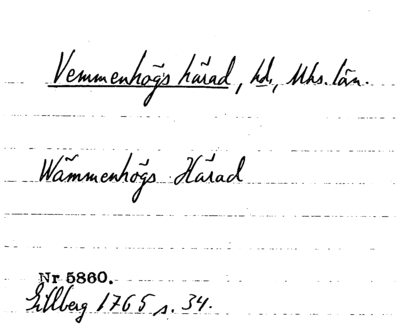 Vemmenhögs härad, hd., Mhs. län.
Wämmenhögs Härad
Nr 5860.
Gillberg 1765 s. 34.